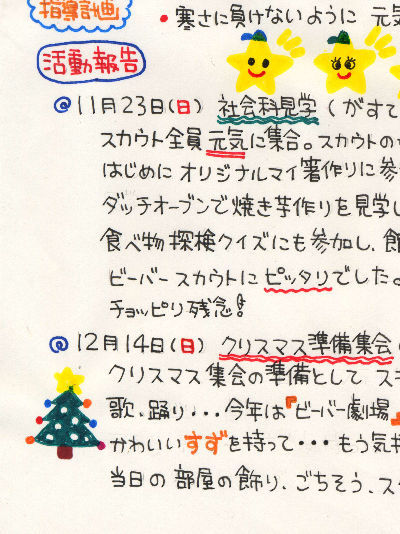 指導計画
• 寒さに負けないように 元気
活動報告
◎11月23日(日) 社会科見学(がすて
スカウト全員 元気に集合。スカウトの
はじめに オリジナルマイ箸作りに参
ダッチオーブンで焼き芋作りを見学し
食べ物探検クイズにも参加し、館
ビーバースカウトに ピッタリでした。
チョッピリ残念!
◎12月14日(日) クリスマス準備集会(
クリスマス集会の準備として ス
歌、踊り・・・今年は『ビーバー劇場』
かわいいすずを持って・・・もう気持
当日の 部屋の飾り、ごちそう、ス